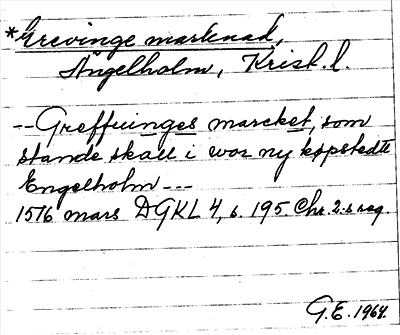 *Grevinge marknad,
Ängelholm, Krist. l.
-- Greffuinges marcket, som
stande skall i wor ny køpstedt
Engelholm ---
1516 mars DGKL 4, s. 195. Chr. 2:s reg.
G.E. 1964.